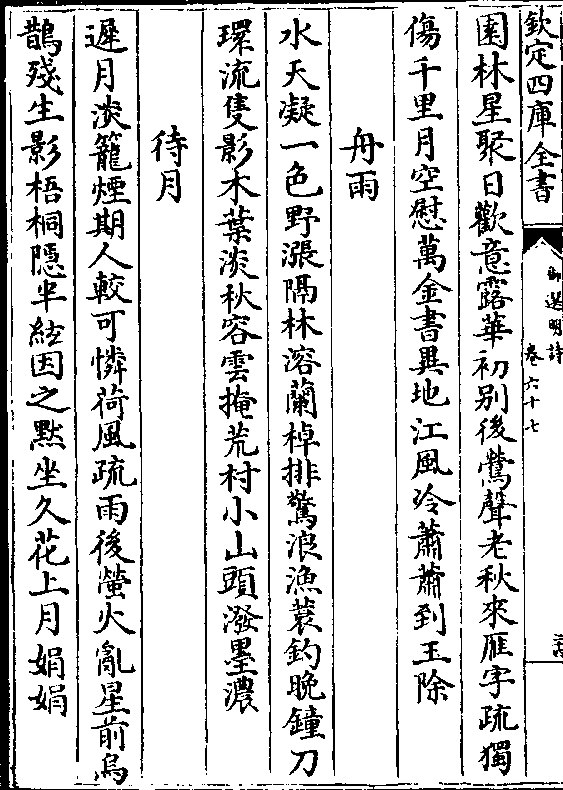 欽定四庫全書
御選明詩
卷六十七
園林星聚日歡意露華初别後鶯聲老秋來雁字疏獨
傷千里月空慰萬金書異地江風冷蕭蕭到玉除
舟雨
水天凝一色野漲隔林溶蘭棹排驚浪漁蓑釣晚鐘刀
環流隻影木葉淡秋容雲掩荒村小山頭潑墨濃
待月
遲月淡籠煙期人較可憐荷風疏雨後螢火亂星前烏
鵲殘生影梧桐隱半絃因之黙坐久花上月娟娟